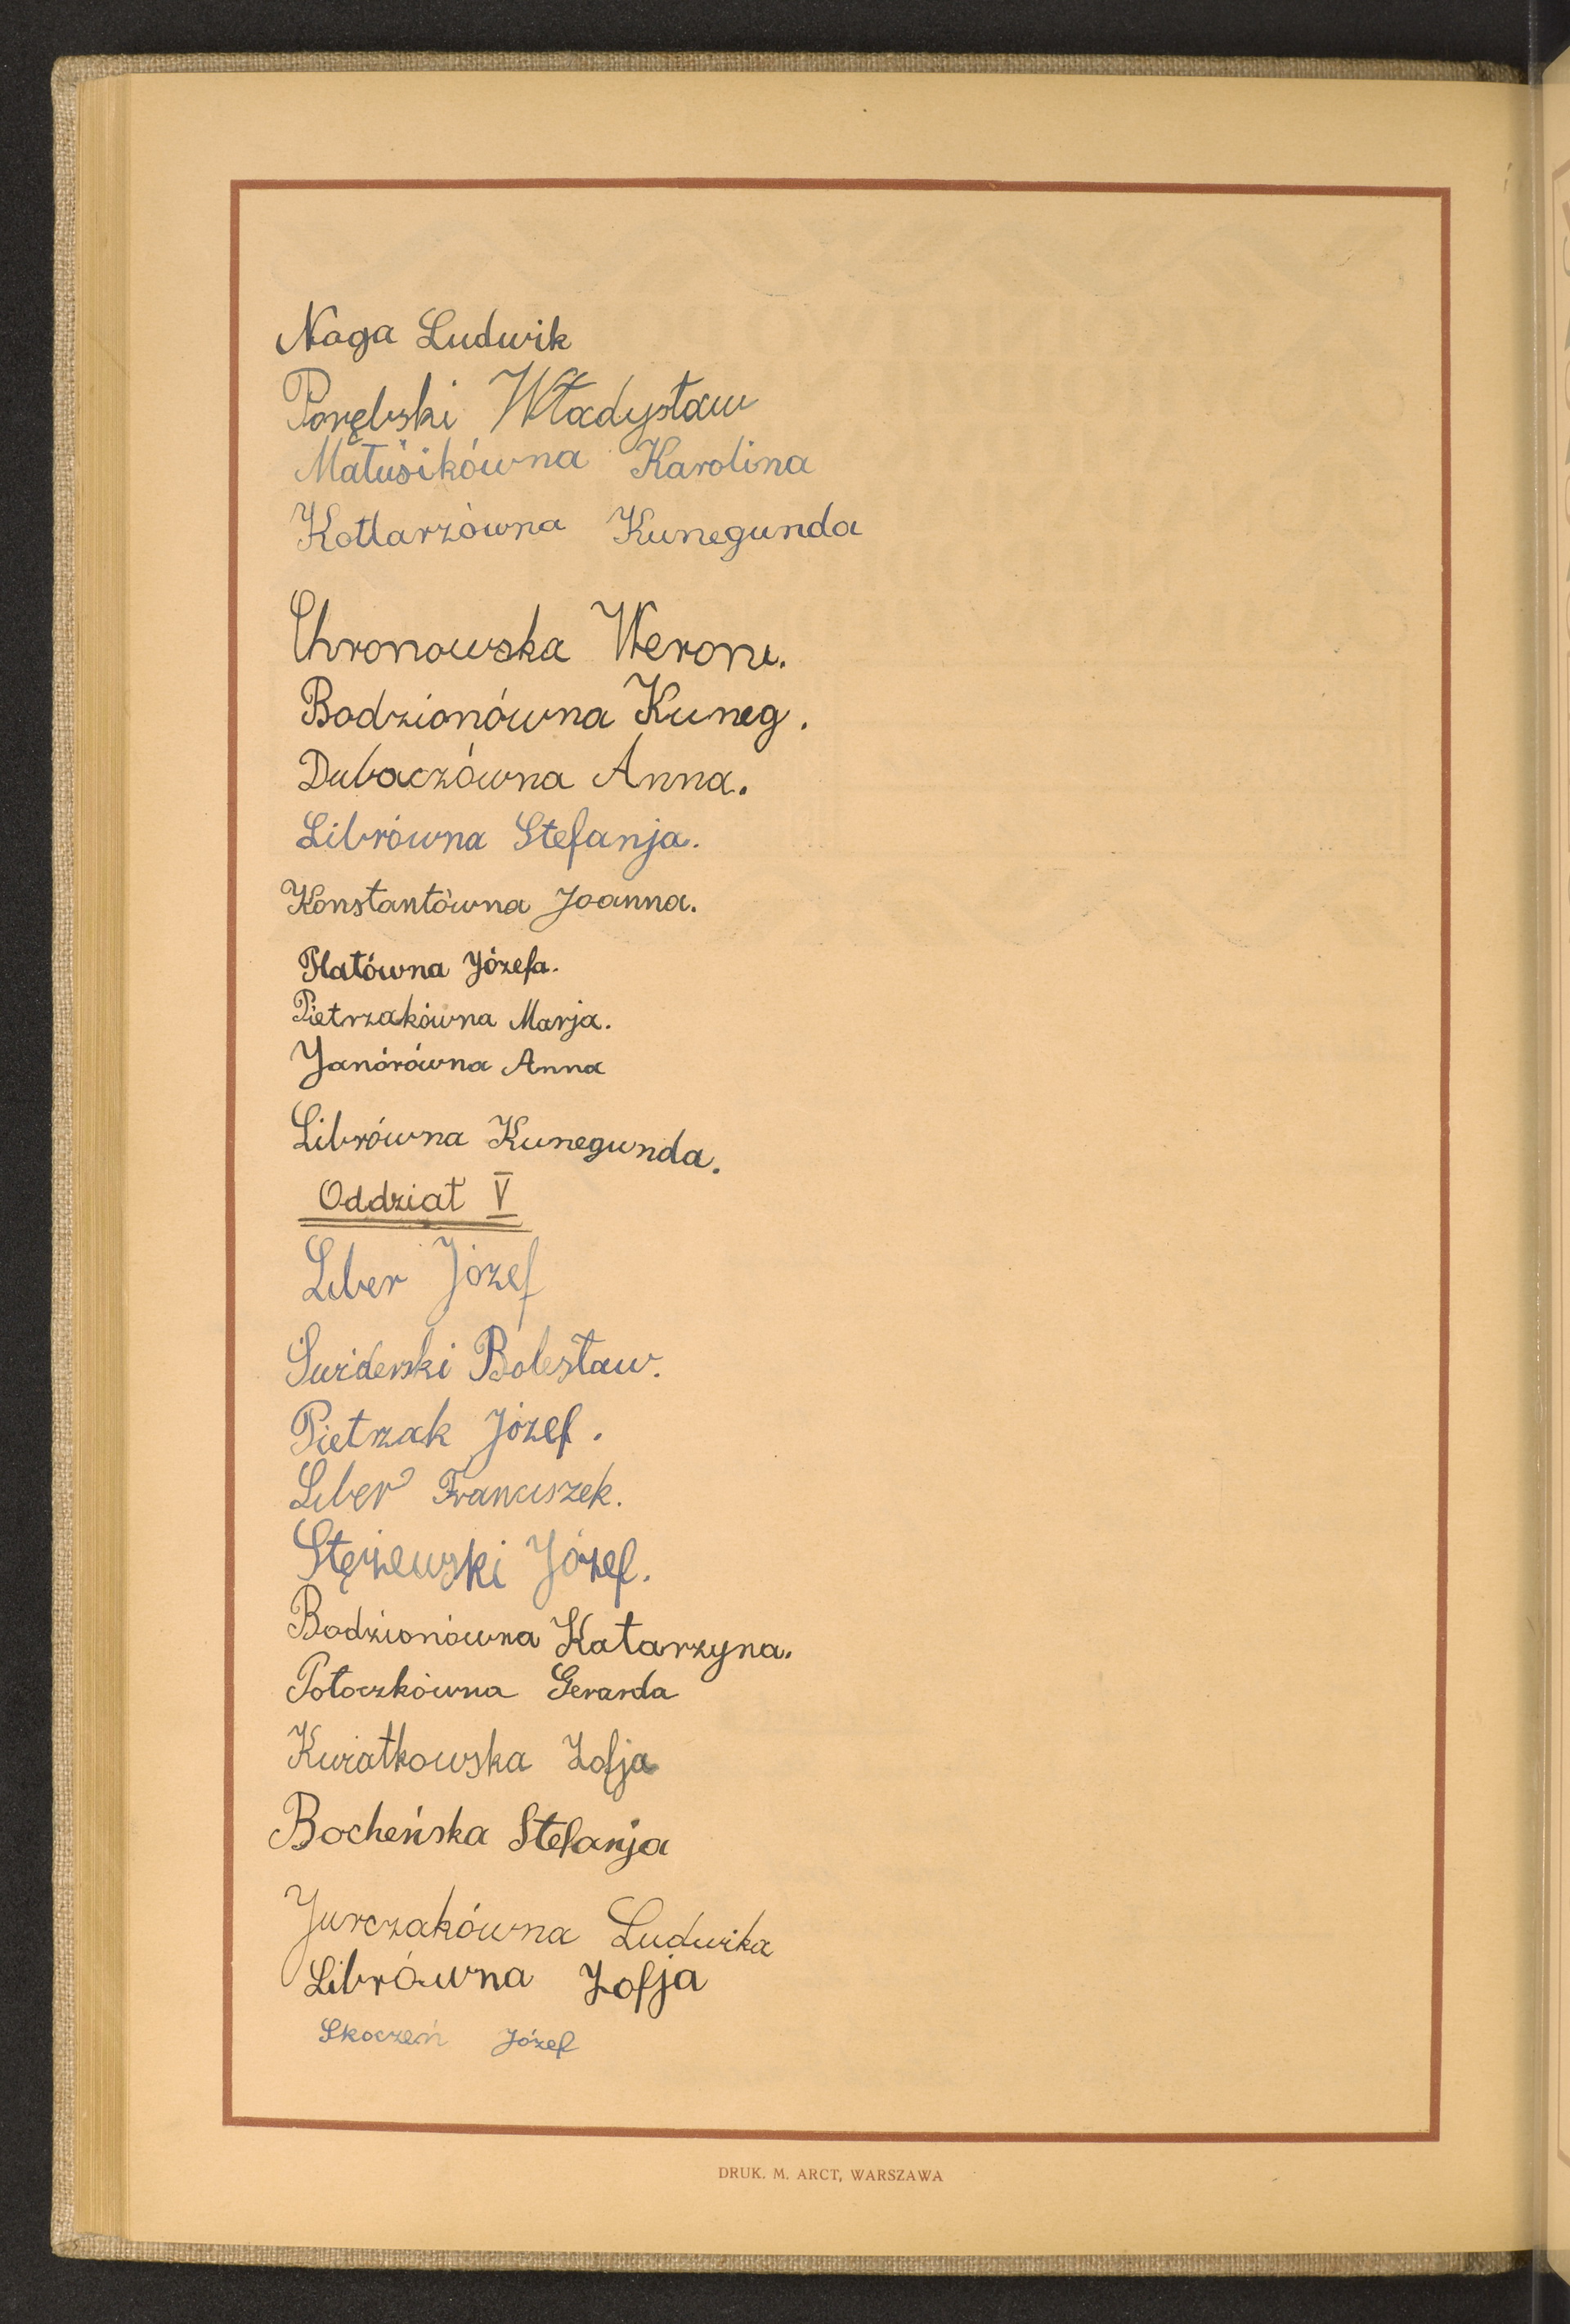 Noga Ludwik
Porębski Władysław
Matusikówna Karolina
Kotlarzówna Kunegunda
Chronowska Weron.
Bodzionówna Kuneg.
Dubaczówna Anna.
Librówna Stefanja.
Konstantówna Joanna.
Platówna Józefa.
Pietrzakówna Marja.
Janórówna Anna
Librówna Kunegunda.
Oddział V
Liber Józef
Świderski Bolesław.
Pietrzak Józef.
Liber Franciszek.
Stężewski Józef.
Bodzionówna Katarzyna.
Potoczkówna Gerarda
Kwiatkowska Zofja
Bocheńska Stefanja
Jurczakówna Ludwika
Librówna Zofja
Skoczeń Józef
DRUK. M. ARCT, WARSZAWA